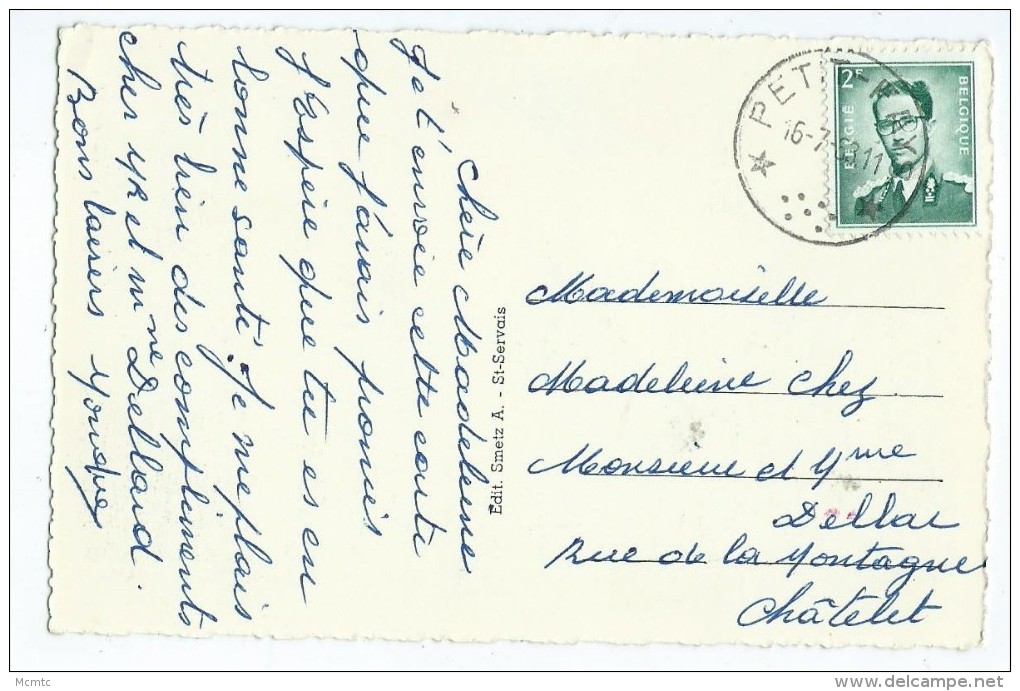 Chère Madeleine
Je t'envoie cette carte
que j'avais promis
J'Espère que tu es en
bonne santé. Je me plais
très bien des compliments
cher Mr et Mme Dellard.
Bons baisers
Edit. Smetz A. - St-Servais
PETIT-
16-7- 11
2F
BELGIË
BELGIQUE
Mademoiselle
Madeleine Chez
Monsieur et Mme
Dellar
Rue de la Montagne
Châtelet
Mcmtc
delcampe.net